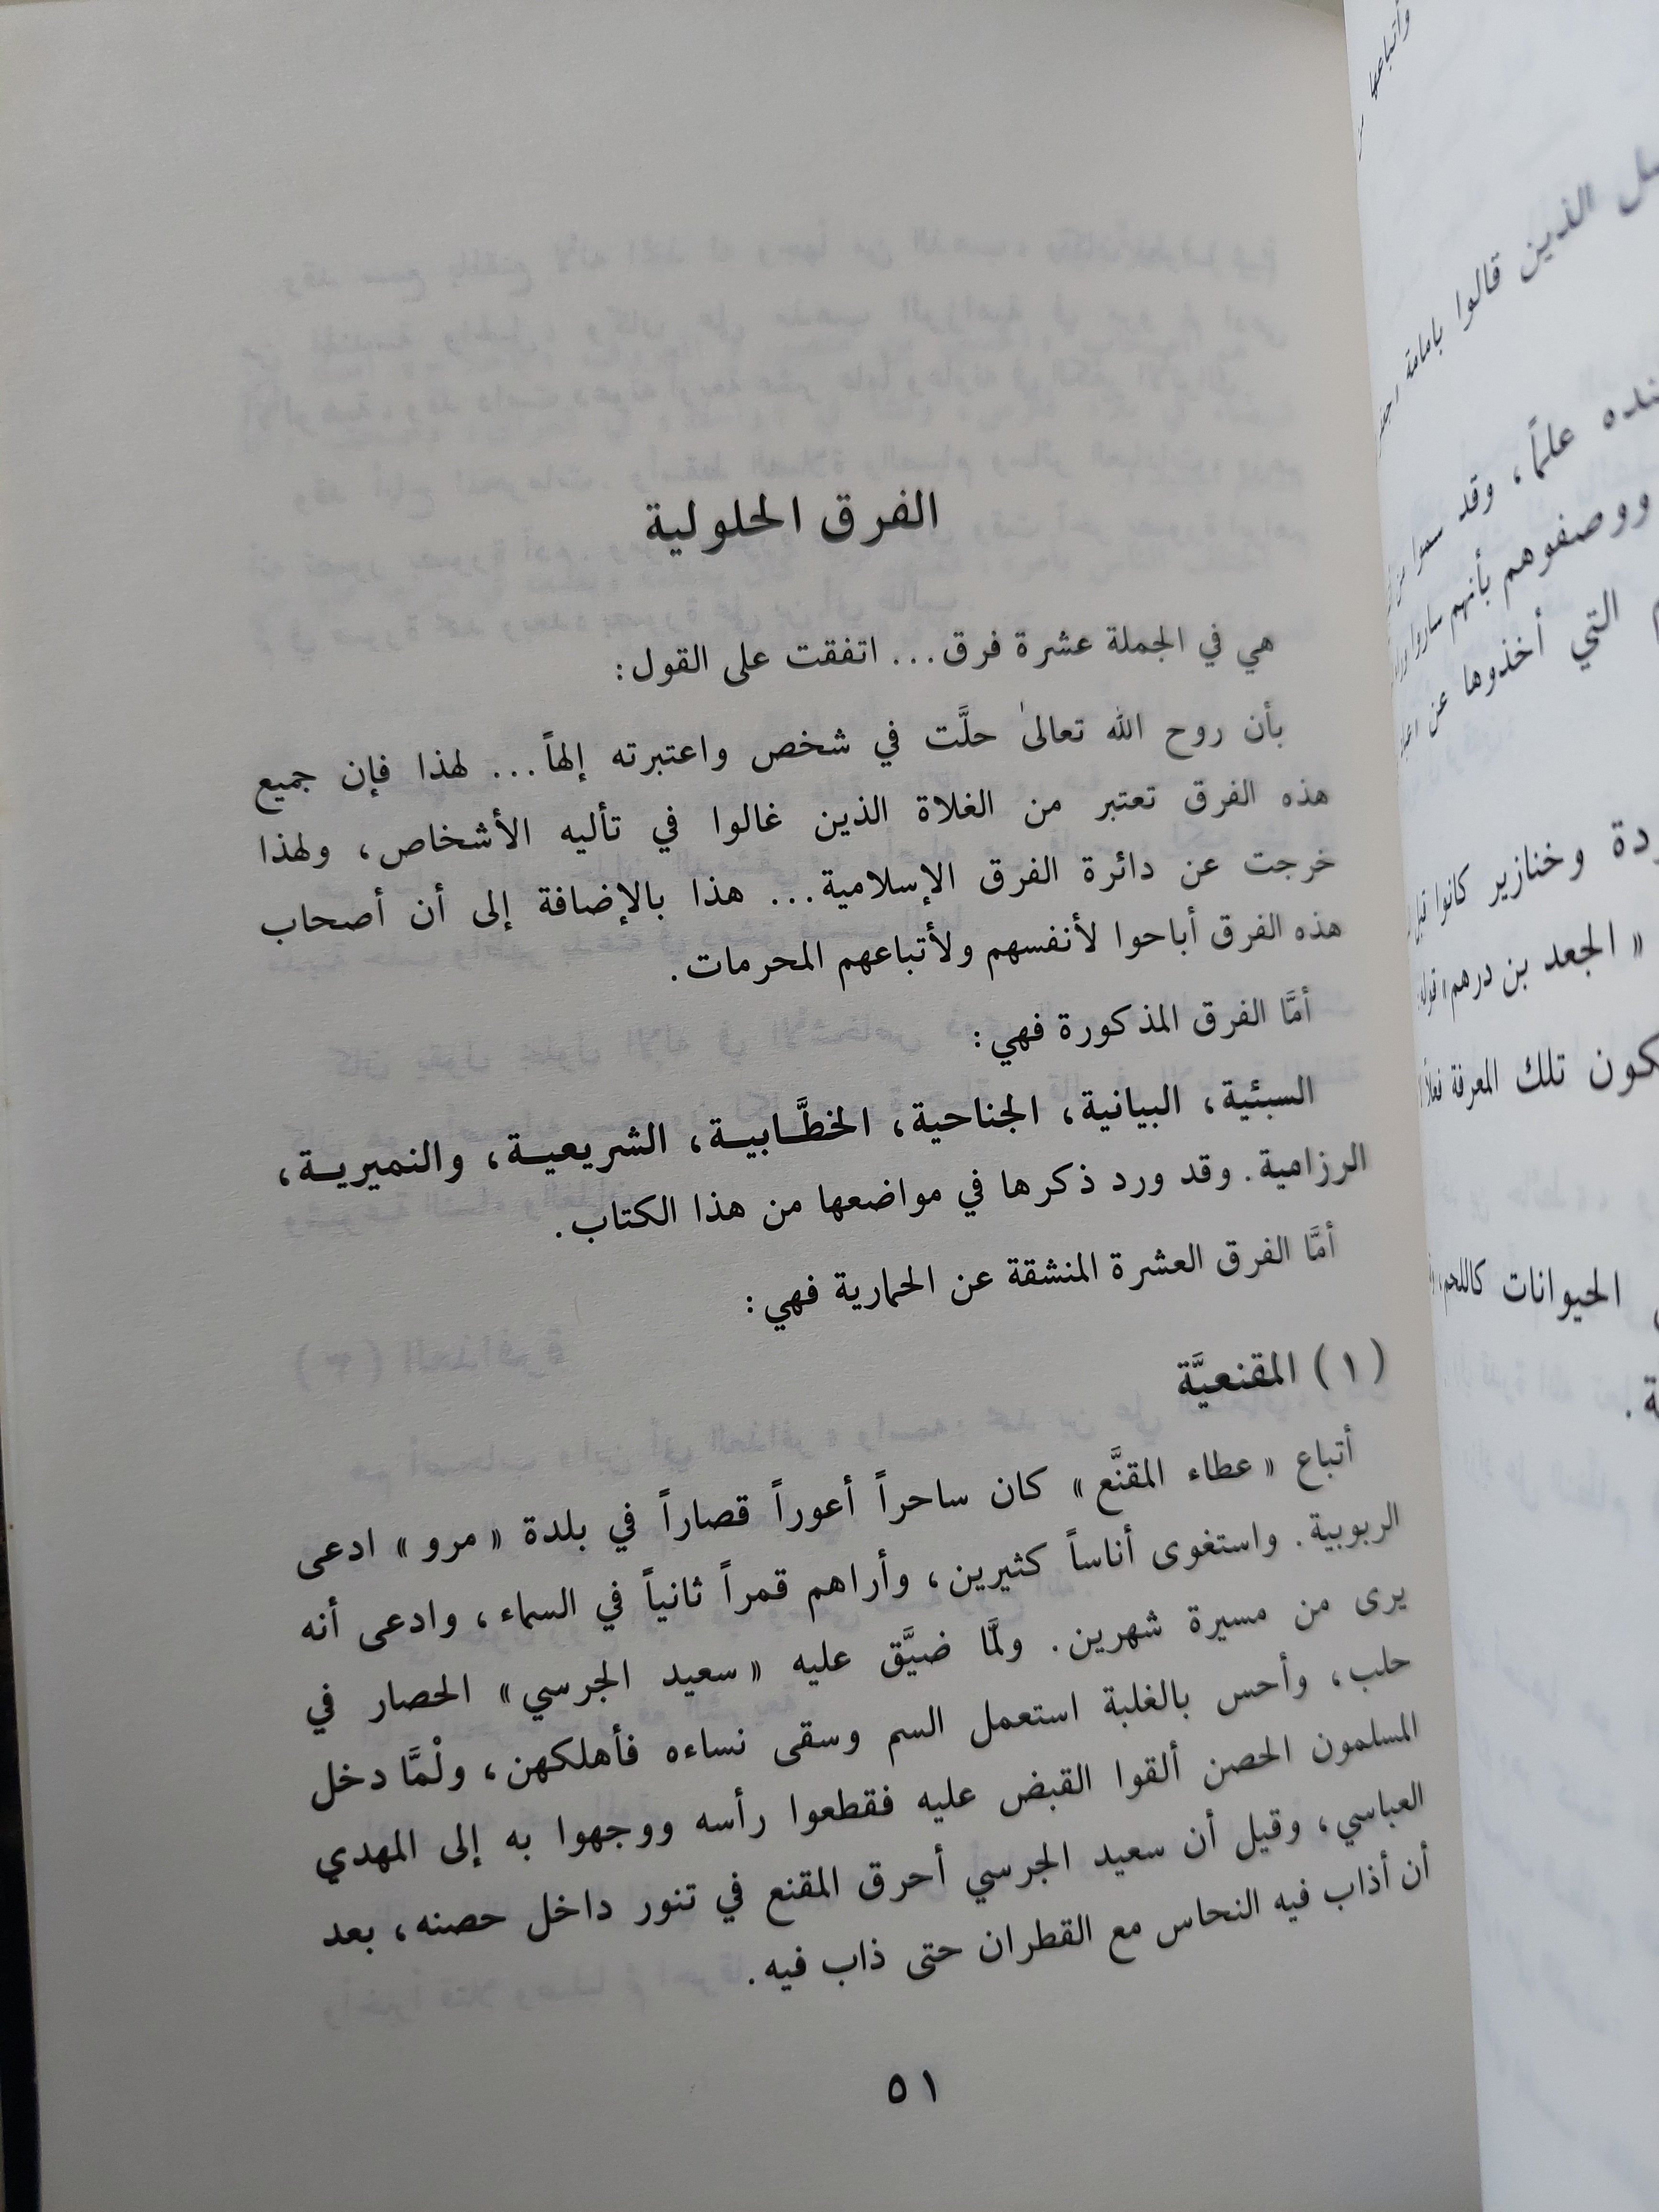 الفرق الحلولية
هي في الجملة عشرة فرق... اتفقت على القول:
بأن روح الله تعالىٰ حلَّت في شخص واعتبرته إلهاً... لهذا فإن جميع
هذه الفرق تعتبر من الغلاة الذين غالوا في تأليه الأشخاص، ولهذا
خرجت عن دائرة الفرق الإسلامية... هذا بالإضافة إلى أن أصحاب
هذه الفرق أباحوا لأنفسهم ولأتباعهم المحرمات.
أمَّا الفرق المذكورة فهي:
السبئية، البيانية، الجناحية، الخطَّابية، الشريعية، والنميرية،
الرزامية. وقد ورد ذكرها في مواضعها من هذا الكتاب.
أمَّا الفرق العشرة المنشقة عن الحمارية فهي:
(١) المقنعيَّة
أتباع «عطاء المقنَّع» كان ساحراً أعوراً قصاراً في بلدة «مرو» ادعى
الربوبية. واستغوى أناساً كثيرين، وأراهم قمراً ثانياً في السماء، وادعى أنه
يرى من مسيرة شهرين. ولمَّا ضيَّق عليه «سعيد الجرسي» الحصار في
حلب، وأحس بالغلبة استعمل السم وسقى نساءه فأهلكهن، ولْمَّا دخل
المسلمون الحصن ألقوا القبض عليه فقطعوا رأسه ووجهوا به إلى المهدي
العباسي، وقيل أن سعيد الجرسي أحرق المقنع في تنور داخل حصنه، بعد
أن أذاب فيه النحاس مع القطران حتى ذاب فيه.
٥١
وأتباعها
الذين قالوا بامامة
علماً، وقد سموا
ووصفوهم بأنهم ساروا
التي أخذوها عن
وخنازير كانوا
«الجعد بن درهم»
تلك المعرفة
الحيوانات كاللحم